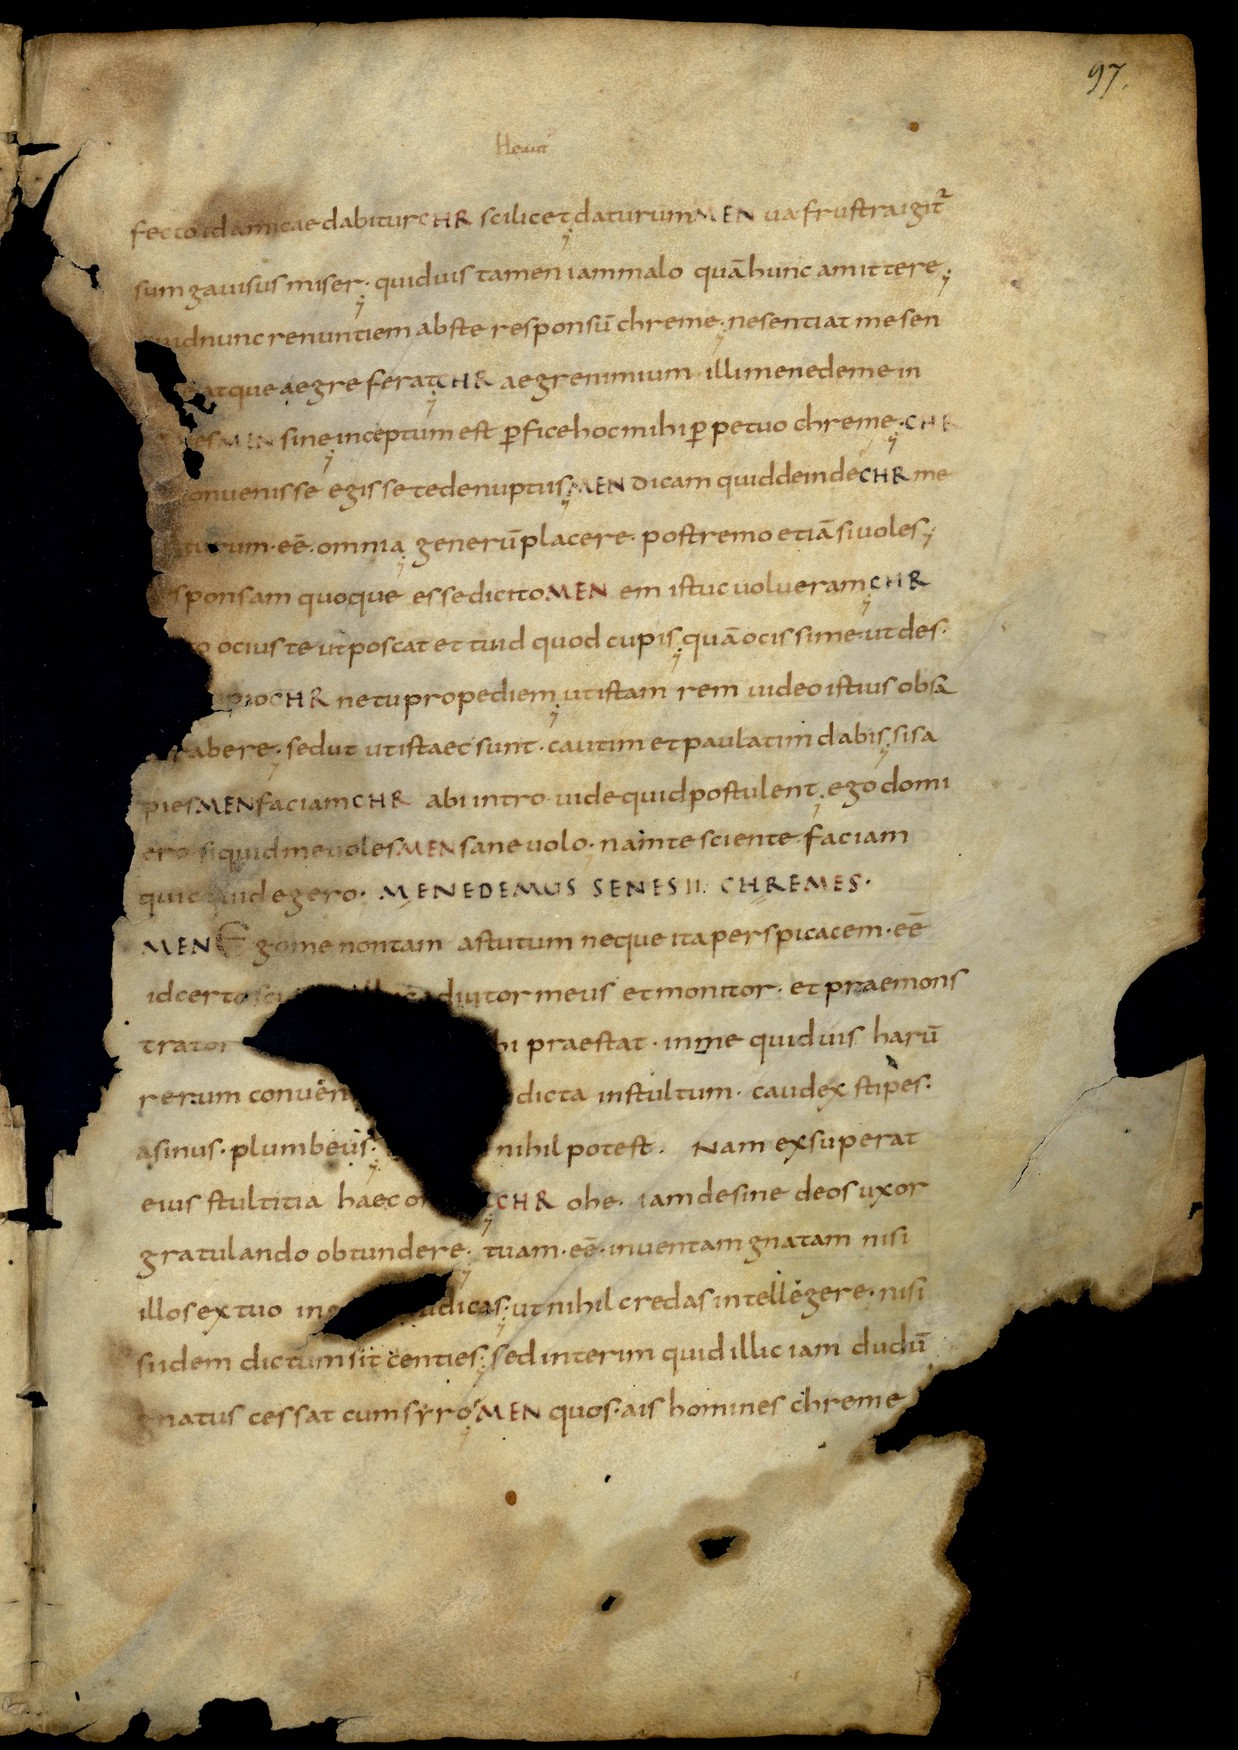 97.
Heaut
fecto id amicae dabitur CHR scilicet daturum MEN uae frustra igit²
sum gauisus miser. quiduis tamen iam malo quā hunc amittere;
uid nunc renuntiem abs te responsū chreme. ne sentiat me sen
atque aegre ferat CHR aegre nimium illi menedeme in
es MEN sine inceptum est ꝑfice hoc mihi ꝑpetuo chreme. CHR
onuenisse egisse te de nuptiis MEN dicam quid deinde CHR me
turum. eē. omnia generū placere. postremo etiā si uoles;
sponsam quoque esse dicito MEN em istuc uolueram CHR
to ocius te ut poscat et tu id quod cupis quā ocissime. ut des.
pio CHR ne tu propediem ut istam rem uideo istius obsa
abere. sed ut ut istaec sunt. cautim et paulatim dabis. si sa
pies MEN faciam CHR abi intro. uide quid postulent. ego domi
ero si quid me uoles MEN sane uolo. nam te sciente faciam
quic uid egero. MENEDEMUS SENES II. CHREMES.
MEN Egome non tam astutum neque ita perspicacem. eē
id certo sci adiutor meus et monitor. et praemons
trator hi praestat. in me quid uis harū
rerum conuen dicta in stultum. caudex stipes.
asinus. plumbeus. nihil potest. Nam exsuperat
eius stultitia haec o CHR ohe. iam desine deos uxor
gratulando obtundere. tuam. eē. inuentam gnatam nisi
illos ex tuo in udicas. ut nihil credas intellegere. nisi
idem dictum sit centies. sed interim quid illic iam dudū
gnatus cessat cum syro MEN quos. ais homines chreme